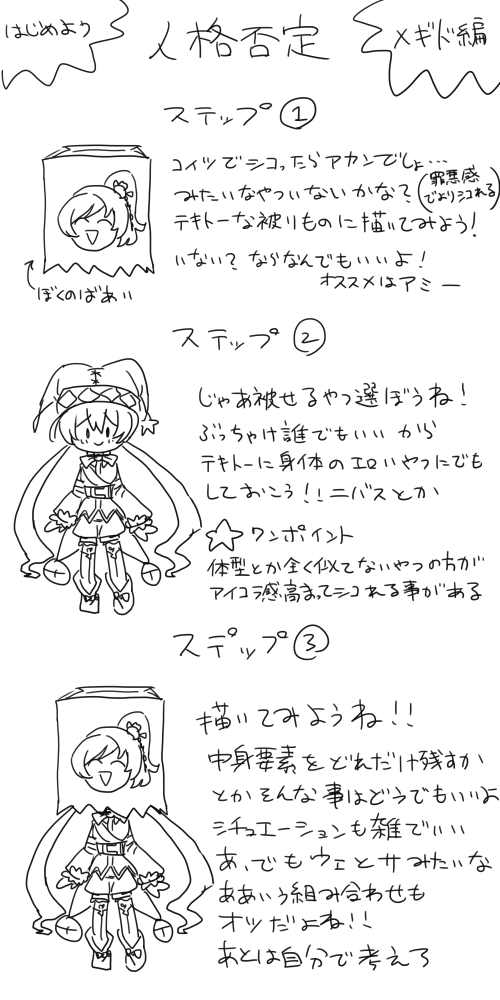 はじめよう
人格否定
メギド編
ステップ①
コイツでシコったらアカンでしょ…
みたいなやついないかな?(罪悪感でよりシコれる)
テキトーな被りものに描いてみよう!
いない?ならなんでもいいよ!
オススメはアミー
ぼくのばあい
ステップ②
じゃあ被せるやつ選ぼうね!
ぶっちゃけ誰でもいいから
テキトーに身体のエロいやつにでも
しておこう!!ニバスとか
☆ワンポイント
体型とか全く似てないやつの方が
アイコラ感高まってシコれる事がある
ステップ③
描いてみようね!!
中身要素をどれだけ残すか
とかそんな事はどうでもいいよ
シチュエーションも雑でいい
あ、でもウェとサみたいな
ああいう組み合わせも
オツだよね!!
あとは自分で考えろ